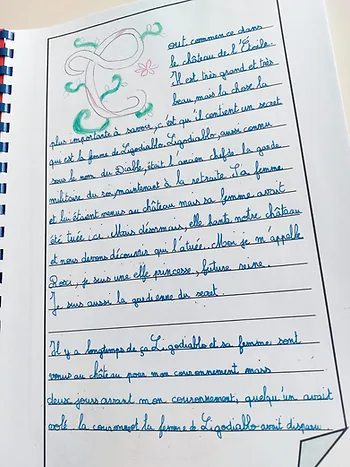 out commence dans
le château de l'Étoile.
Il est très grand et très
beau, mais la chose la
plus importante à savoir, c'est qu'il contient un secret
qui est la femme de Ligodiablo. Ligodiablo, aussi connu
sous le nom du Diable, était l'ancien chef de la garde
militaire du roi, maintenant à la retraite. Sa femme
et lui étaient venus au château mais sa femme avait
été tuée ici. Mais désormais, elle hante notre château
et nous devons découvrir qui l'a tuée. Moi je m'appelle
je suis une elfe princesse, future reine.
Je suis aussi la gardienne du secret.
Il y a longtemps de ça Ligodiablo et sa femme sont
venus au château pour mon couronnement mais
deux jours avant mon couronnement, quelqu'un avait
volé la couronne et la femme de Ligodiablo avait disparu.